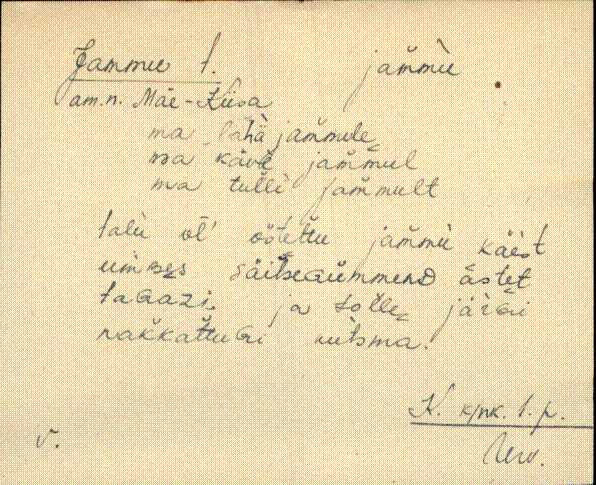 Jammu t. jam̆mù
am.n. Mäe-Kiisa
ma lähä jam̆mule
ma käve jam̆mul
ma tulli jam̆mult
talù ol' ostettu jam̆mù käest
umbes säitsegümmend ästet
tagazi. ja tolle järgi
nakkattuGi nutsma.
K. k/nk. t. p.
v.